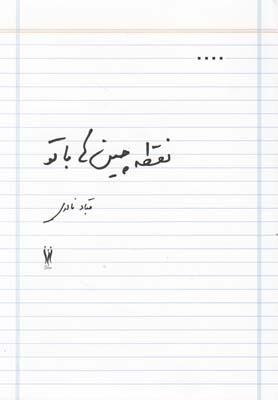 ....
نقطه چین ها با تو
قباد نادری